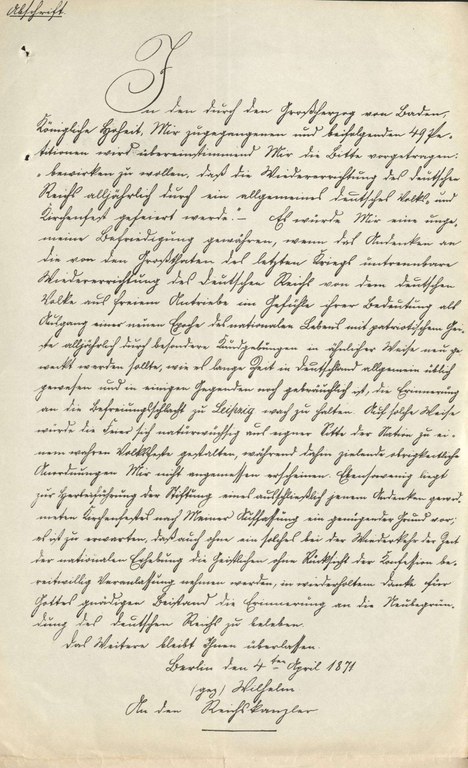 Abschrift
In den durch den Großherzog von Baden,
Königliche Hoheit, Mir zugegangenen und beifolgenden 49 Pe-
titionen wird übereinstimmend Mir die Bitte vorgetragen:
"bewirken zu wollen, daß die Wiedererrichtung des deutschen
Reichs alljährlich durch ein allgemeines deutsches Volks- und
Kirchenfest gefeiert werde." – Es würde Mir eine unge-
meine Befriedigung gewähren, wenn das Andenken an
die von den Großthaten des letzten Kriegs untrennbare
Wiedererrichtung des deutschen Reichs von dem deutschen
Volke aus freiem Antriebe im Gefühle ihrer Bedeutung als
Aufgang einer neuen Epoche des nationalen Lebens mit patriotischem Gei-
ste alljährlich durch besondere Kundgebungen in ähnlicher Weise neu ge-
weckt werden sollte, wie es lange Zeit in Deutschland allgemein üblich
gewesen und in einigen Gegenden noch gebräuchlich ist, die Erinnerung
an die Befreiungsschlacht zu Leipzig wach zu halten. Auf solche Weise
würde die Feier sich naturwüchsig aus eigner Sitte der Nation zu ei-
nem wahren Volksfeste gestalten, während dahin zielende obrigkeitliche
Anordnungen Mir nicht angemessen erscheinen. Ebensowenig liegt
zur Herbeiführung der Stiftung eines ausschließlich jenem Andenken gewid-
meten Kirchenfestes nach Meiner Auffassung ein genügender Grund vor;
es ist zu erwarten, daß auch ohne ein solches bei der Wiederkehr der Zeit
der nationalen Erhebung die Geistlichen, ohne Rücksicht der Konfession be-
reitwillig Veranlassung nehmen werden, in wiederholtem Danke für
Gottes gnädigen Beistand die Erinnerung an die Neubegrün-
dung des deutschen Reichs zu beleben.
Das Weitere bleibt Ihnen überlassen.
Berlin den 4ten April 1871
(gez) Wilhelm
An den Reichskanzler